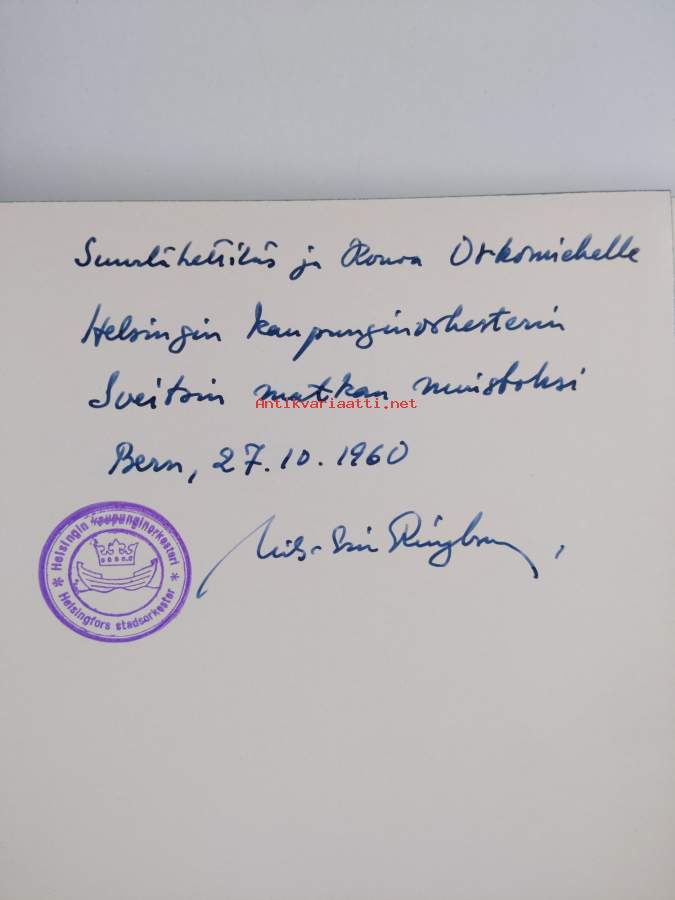 Suurlähettiläs ja Rouva Orkomiehelle
Helsingin kaupunginorkesterin
Sveitsin matkan muistoksi
Antikvariaatti.net
Bern, 27.10.1960
Nils-Eric Ringbom,
* Helsingin kaupunginorkesteri *
Helsingfors stadsorkester